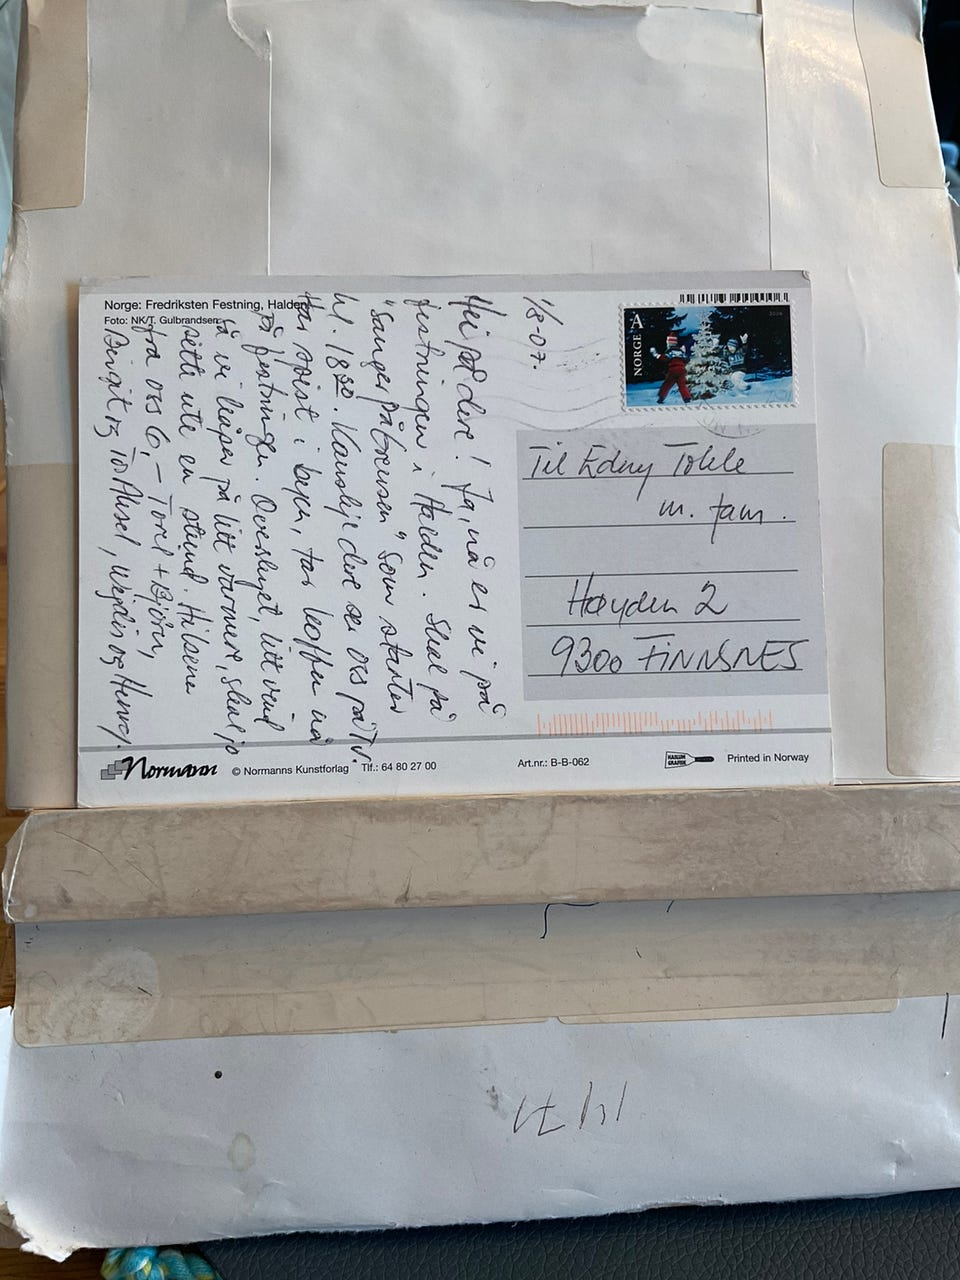 Norge: Fredriksten Festning, Halden
Foto: NK/T. Gulbrandsen
1/8-07.
Hei på dere! Ja, nå er vi på
festningen i Halden. Skal på
"Sanger på Grensen" som starter
kl. 18 30. Kanskje dere ser oss på TV.
Har spist i byen, tar kaffen nå
på festningen. Overskyet, litt vind
så vi håper på litt varmere, skal jo
sitte ute en stund. Hilsene
fra oss 6, - Toril + Björn,
Bengt og Aksel, Weidis og Henry.
NORGE A
2006
Til Edny Tokle
m. fam.
Høyden 2
9300 FINNSNES
Normann © Normanns Kunstforlag Tlf.: 64 80 27 00 Art.nr.: B-B-062 HASLUM GRAFISK Printed in Norway